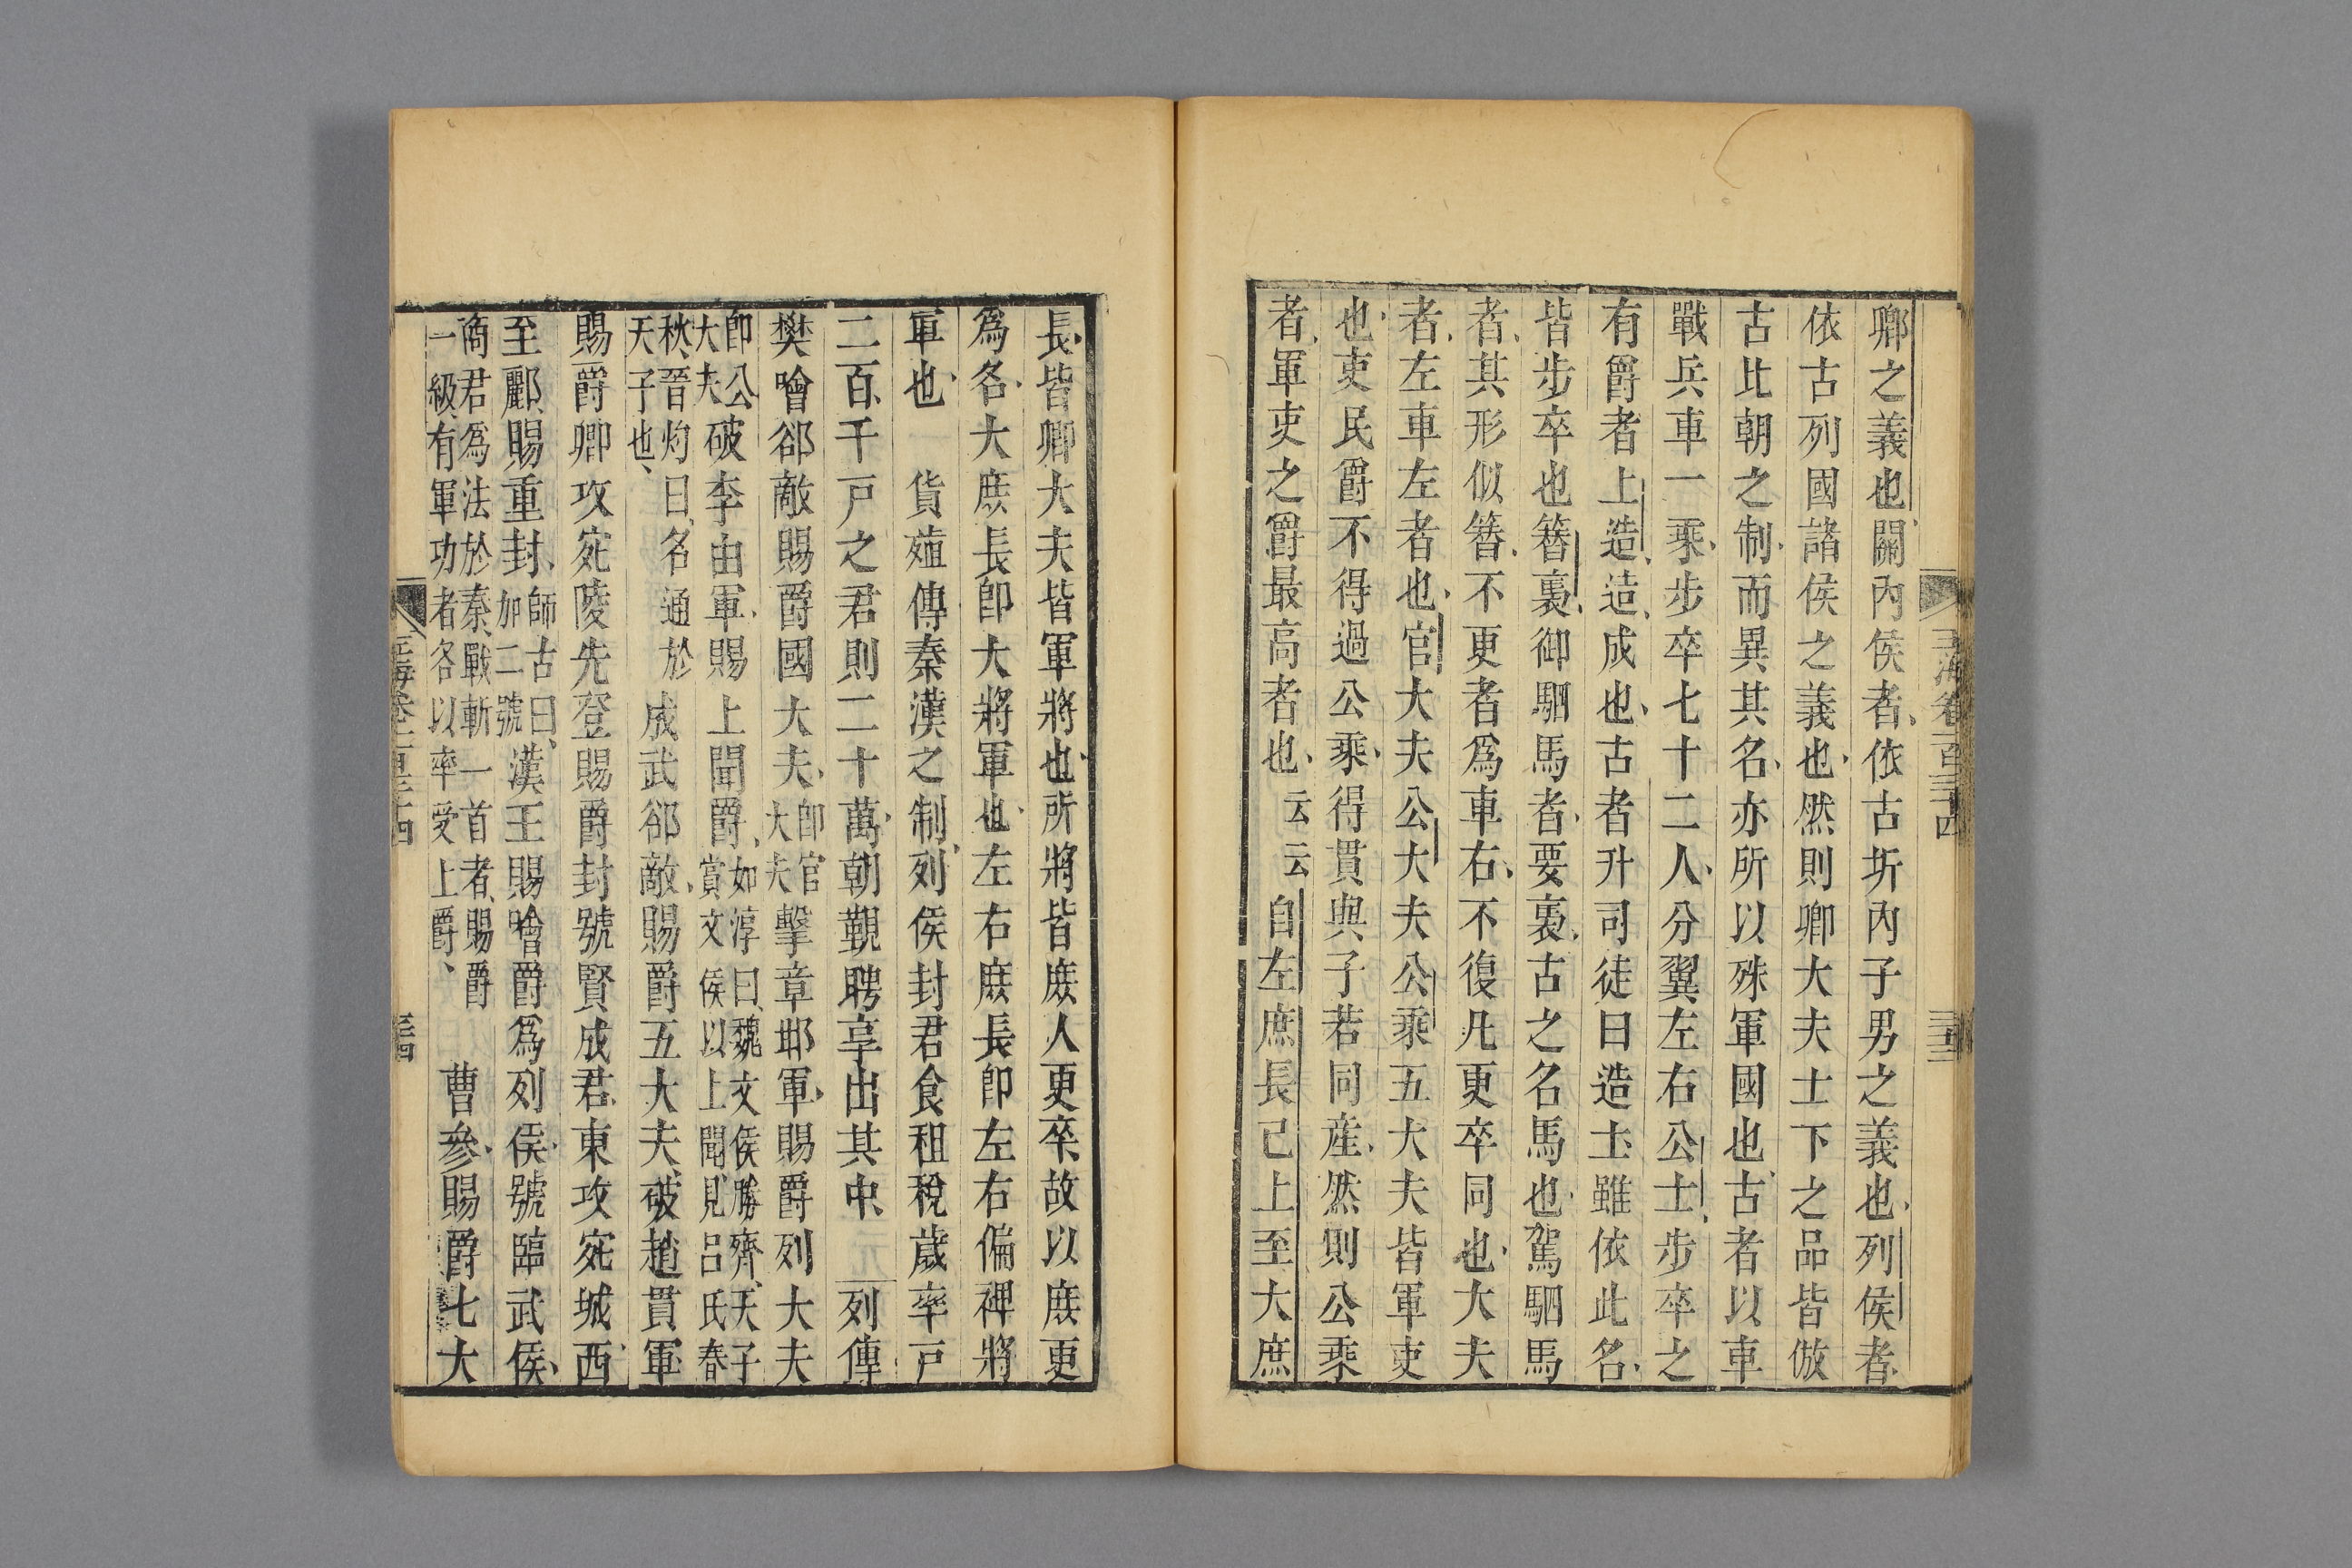 玉海卷一百三十四
三十三
卿之義也關內侯者依古圻內子男之義也列侯者
依古列國諸侯之義也然則卿大夫士下之品皆倣
古比朝之制而異其名亦所以殊軍國也古者以車
戰兵車一乘步卒七十二人分翼左右公士步卒之
有爵者上造造成也古者升司徒曰造士雖依此名
皆步卒也簪裏御駟馬者要裏古之名馬也駕駟馬
者其形似簪不更者爲車右不復凡更卒同也大夫
者左車左者也官大夫公大夫公乘五大夫皆軍吏
也吏民爵不得過公乘得貰與子若同産然則公乘
者軍吏之爵最高者也云云自左庶長已上至大庶
長皆卿大夫皆軍將也所將皆庶人更卒故以庶更
爲名大庶長卽大將軍也左右庶長卽左右偏裨將
軍也　貨殖傳秦漢之制列侯封君食租稅歲率戸
二百千戸之君則二十萬朝覲聘享出其中　列傳
樊噲郤敵賜爵國大夫卽官大夫擊章邯軍賜爵列大夫
卽公大夫破李由軍賜上聞爵如淳曰魏文侯勝齊天子賞文侯以上聞見呂氏春
秋晉灼曰名通於天子也　成武郤敵賜爵五大夫破趙賁軍
賜爵卿攻宛陵先登賜爵封號賢成君東攻宛城西
至酈賜重封師古曰加二號漢王賜噲爵爲列侯號臨武侯
商君爲法於秦戰斬一首者賜爵一級有軍功者各以率受上爵　曹參賜爵七大
玉海卷一百三十四
三十四